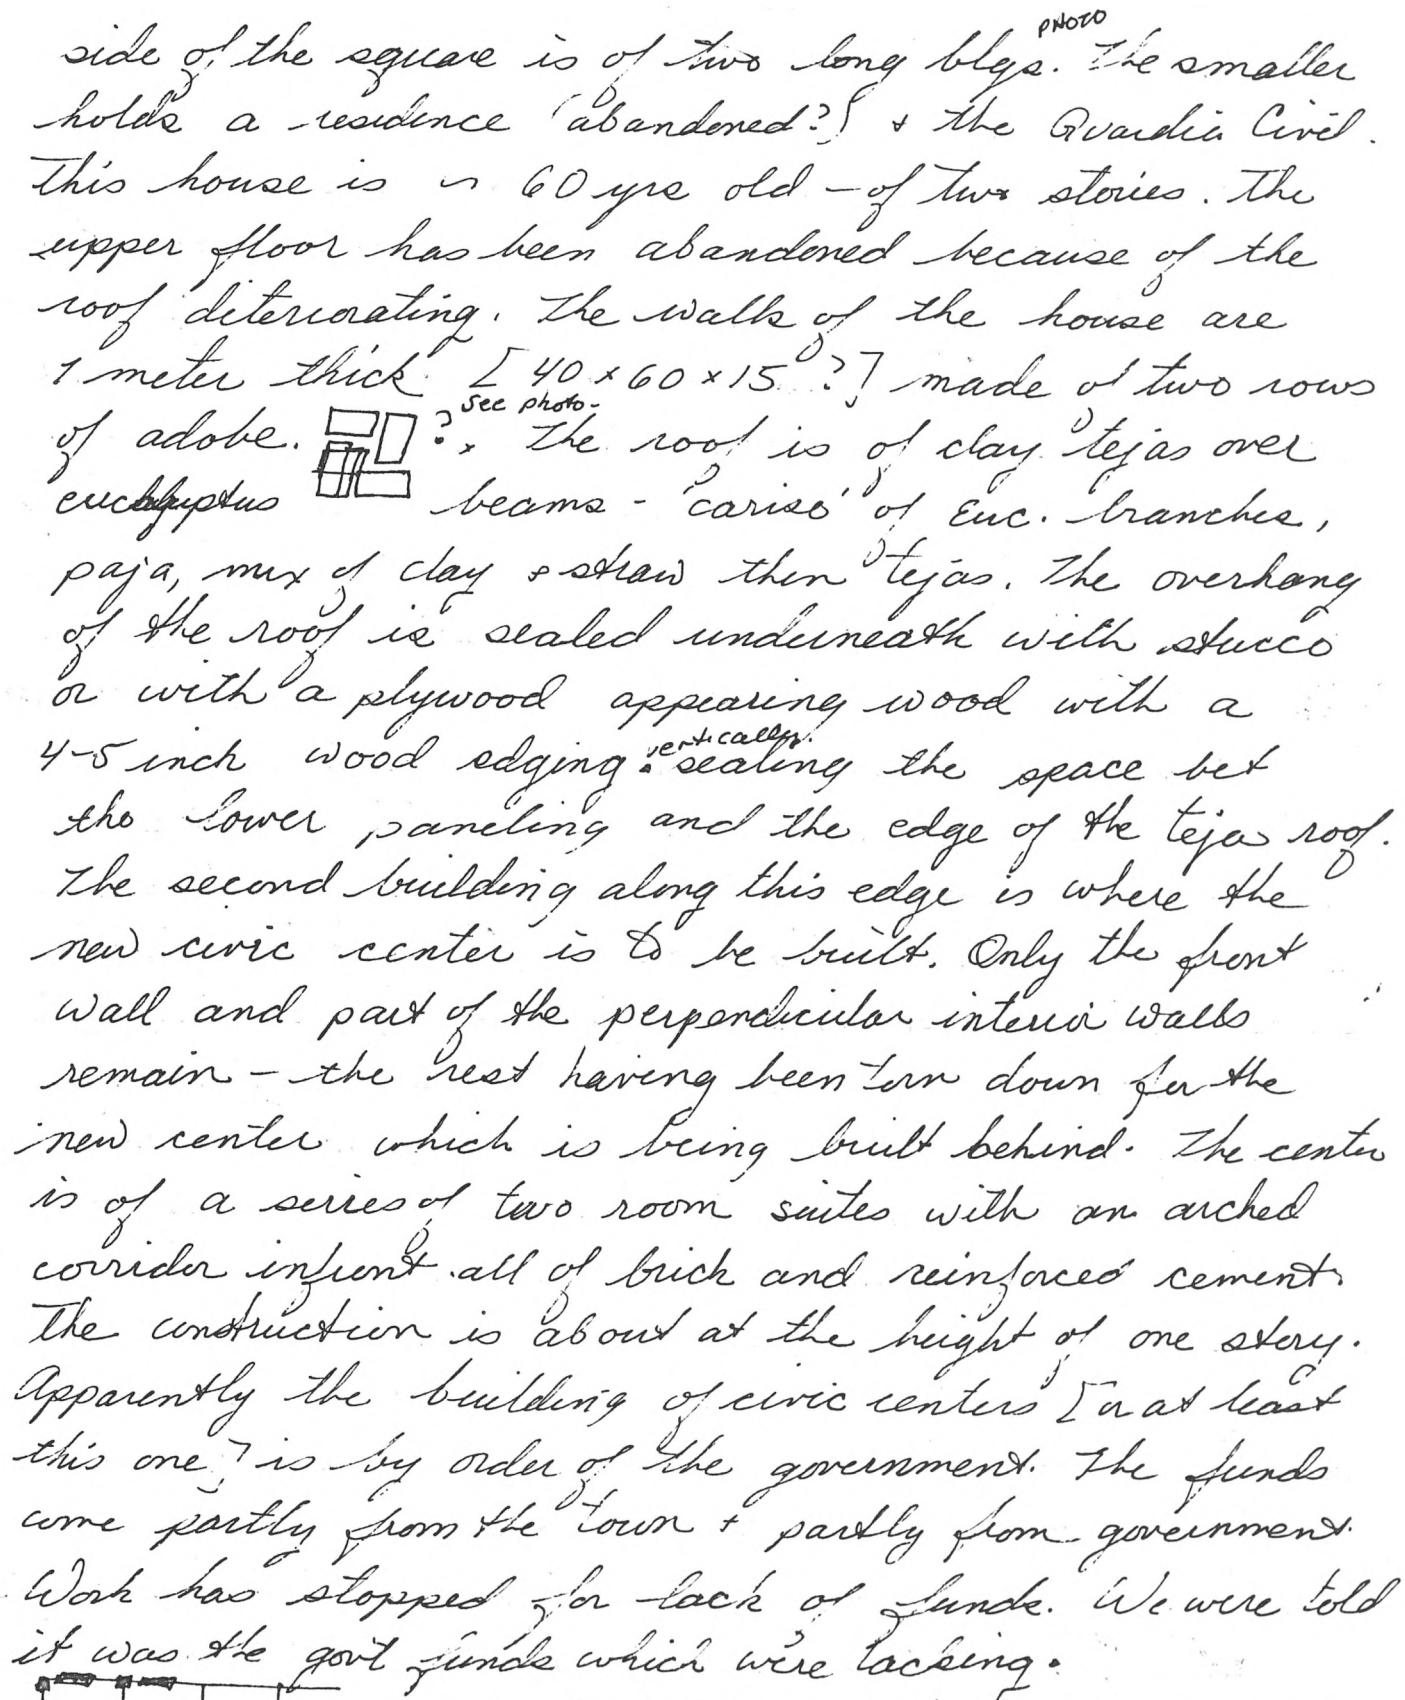 PHOTO
side of the square is of two long blgs. The smaller
holds a residence (abandoned?) + the Guardia Civil.
This house is ~ 60 yrs old - of two stories. The
upper floor has been abandoned because of the
roof deteriorating. The walls of the house are
1 meter thick. [40 x 60 x 15 ?] made of two rows
see photo-
of adobe. ? . The roof is of clay tejas over
eucalyptus beams - 'cariso' of Euc. branches,
paja, mix of clay & straw then tejas. The overhang
of the roof is sealed underneath with stucco
or with a plywood appearing wood with a
vertically.
4-5 inch wood edging sealing the space bet
the lower paneling and the edge of the teja roof.
The second building along this edge is where the
new civic center is to be built. Only the front
wall and part of the perpendicular interior walls
remain - the rest having been torn down for the
new center which is being built behind. The center
is of a series of two room suites with an arched
corridor infront all of brick and reinforced cement.
The construction is about at the height of one story.
Apparently the building of civic centers [or at least
this one] is by order of the government. The funds
come partly from the town + partly from government.
Work has stopped for lack of funds. We were told
it was the gov't funds which were lacking.